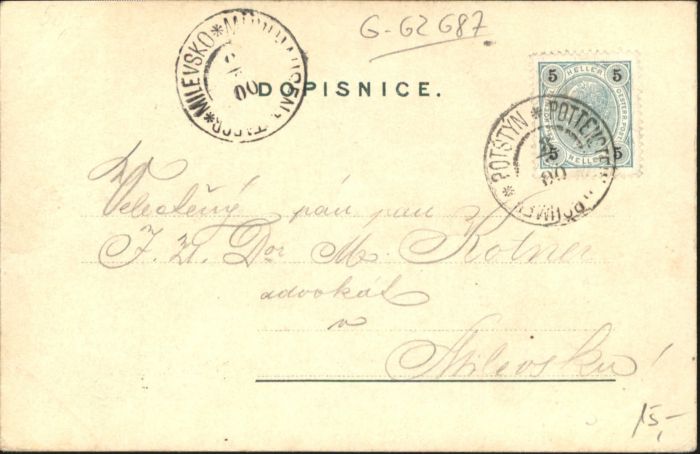 G-62 G87
MILEVSKO
00
DOPISNICE.
5 HELLER 5
5 HELLER 5
POTŠTÝN * POTTENSTEIN
00
Velectěný pán pan
J. U. Dor M. Kotner
advokát
v
Milevsku!
15,-